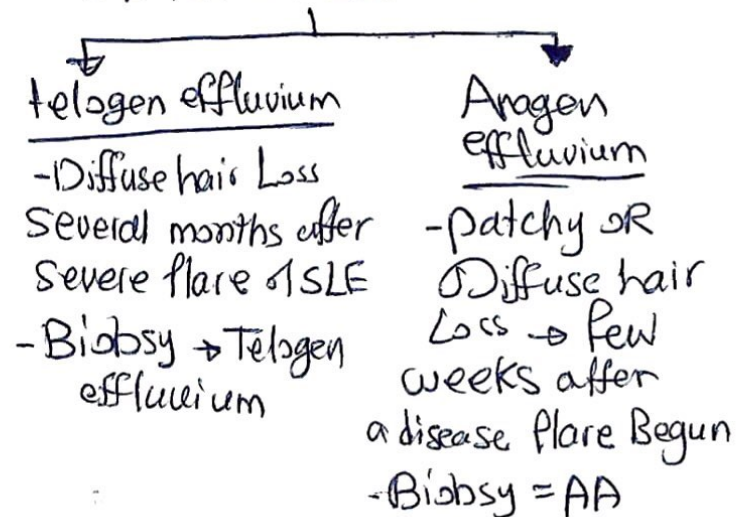 telogen effluvium
-Diffuse hair Loss
Several months after
Severe flare of SLE
-Biobsy → Telogen
effluvium
Anagen
effluvium
-patchy OR
Diffuse hair
Loss → few
weeks after
a disease flare Begun
-Biobsy = AA